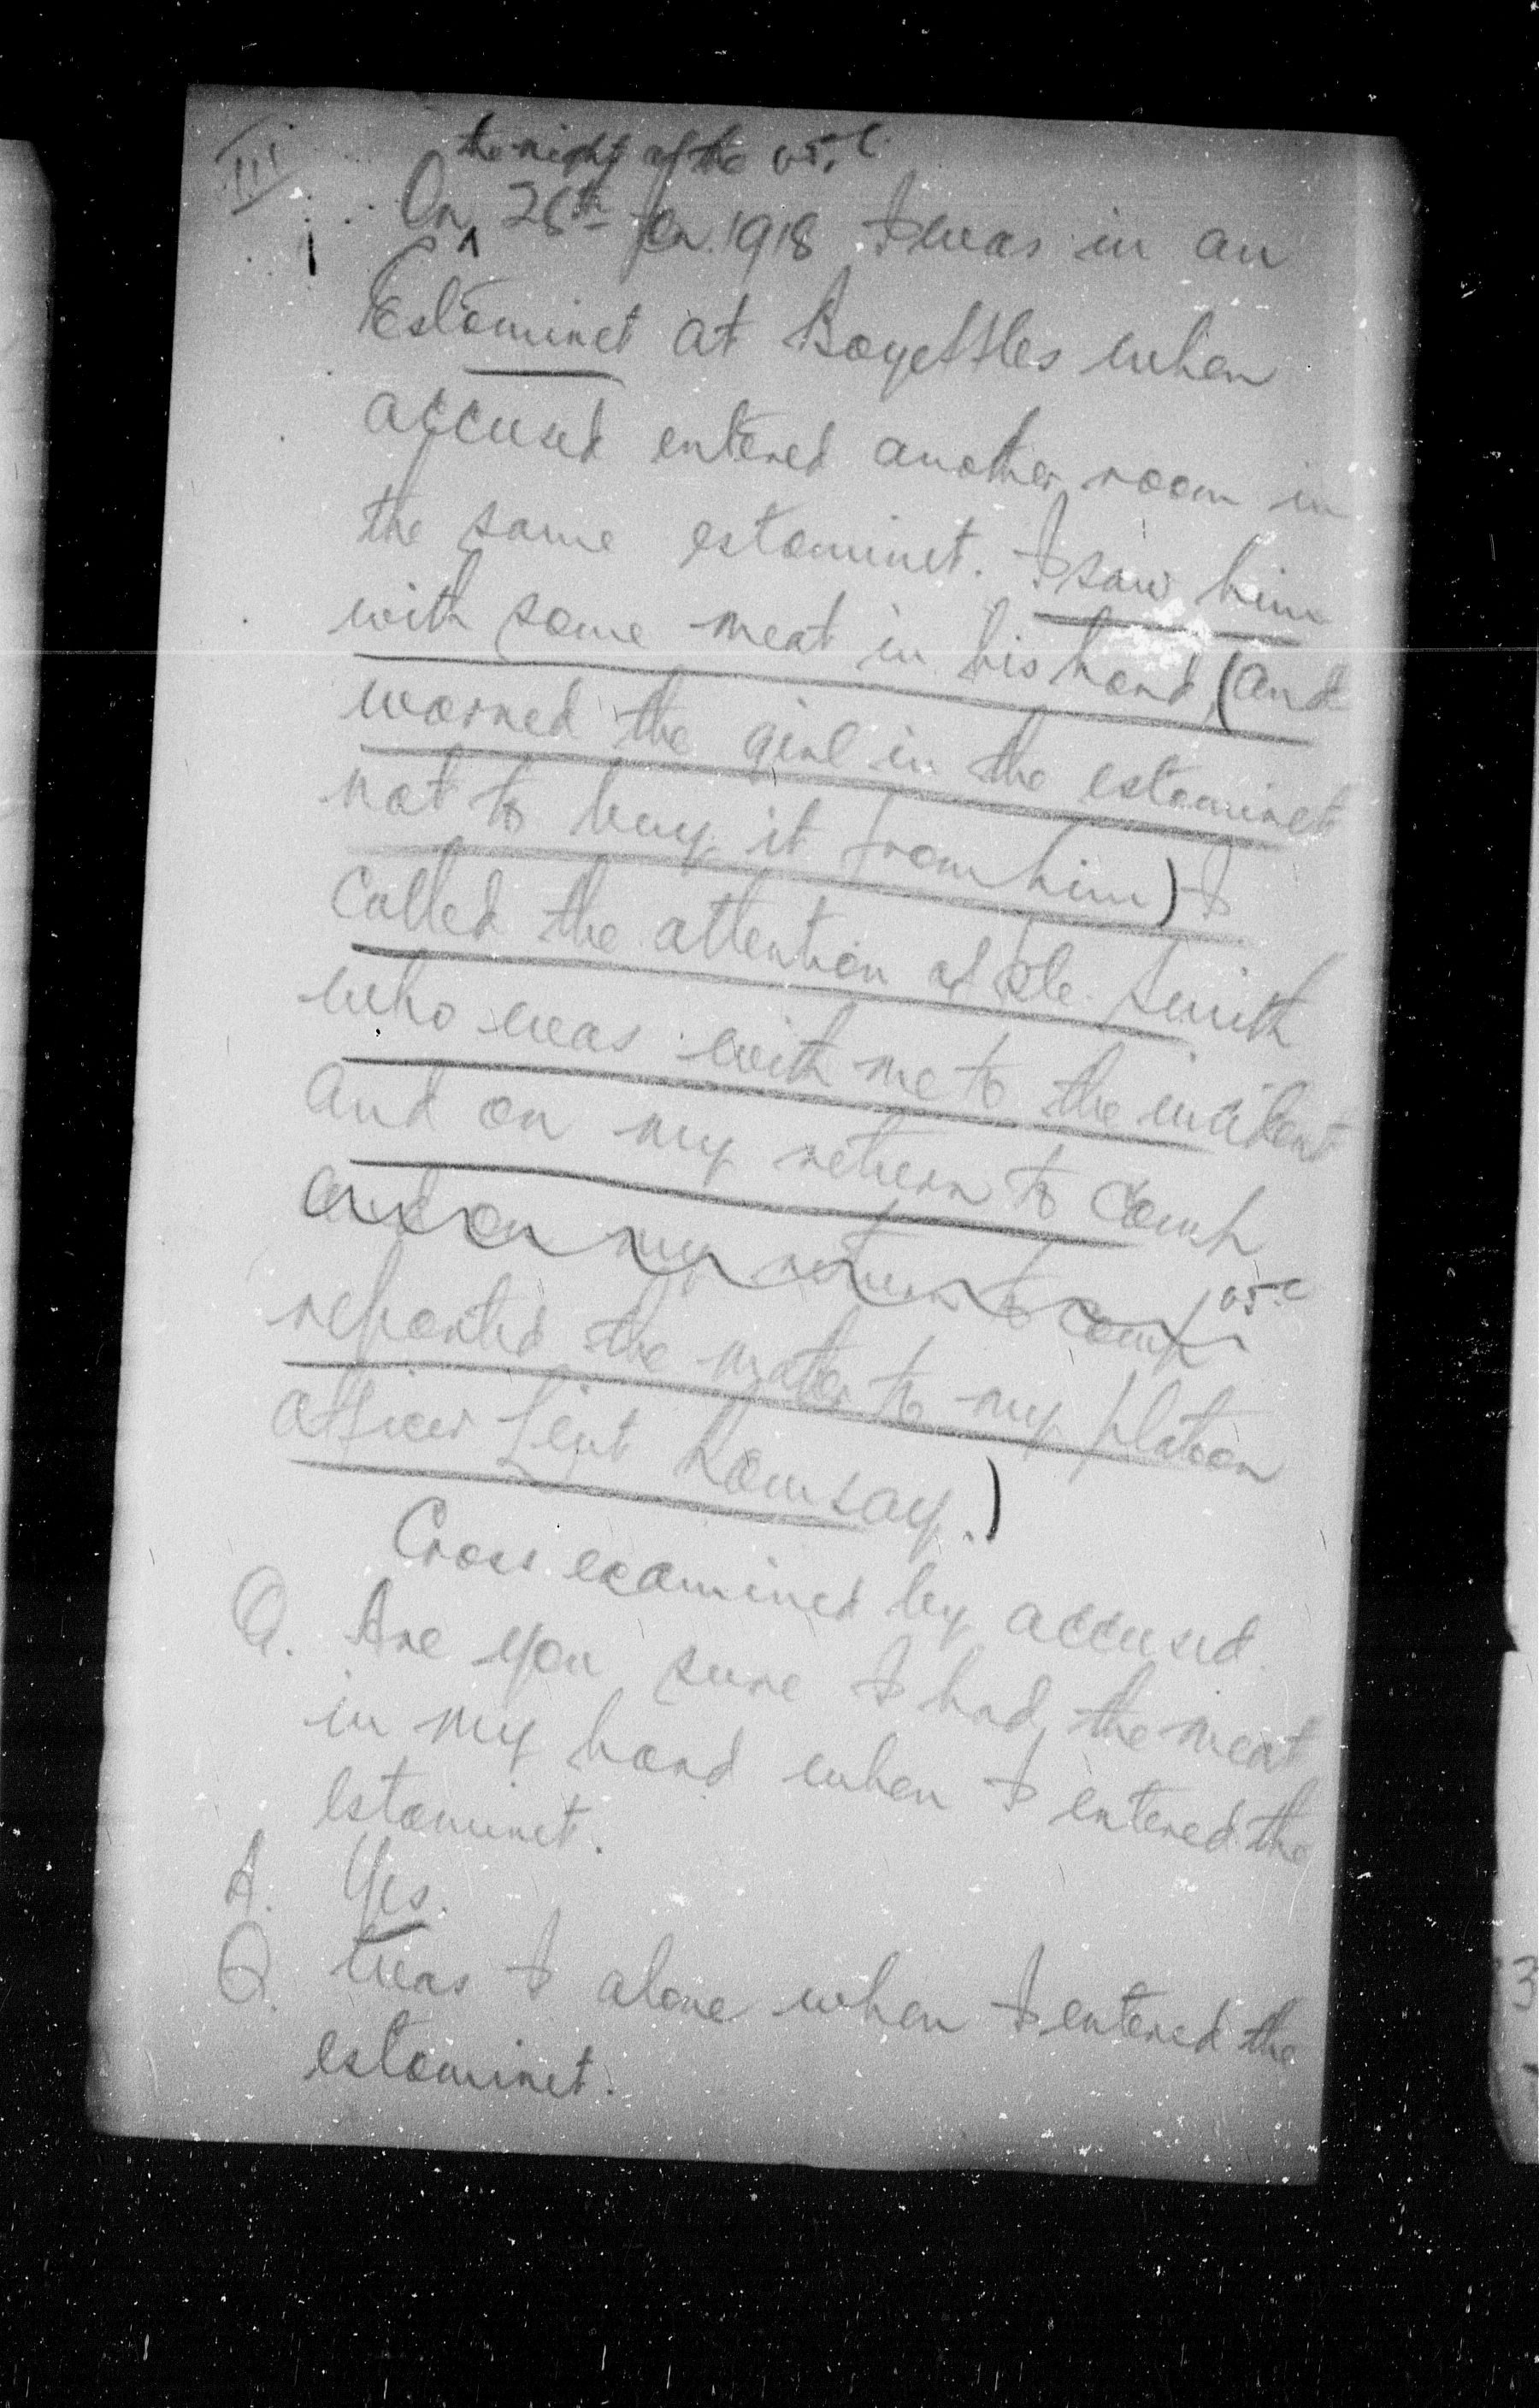 III
the night of the
On 26th Jan. 1918 I was in an
Estaminet at Boyeffles when
accused entered another room in
the same estaminet. I saw him
with some meat in his hand (and
warned the girl in the estaminet
not to buy it from him) I
called the attention of Pte. Smith
who was with me to the incident
and on my return to camp
and on my return to camp
reported the matter to my platoon
officer Lieut Ramsay.)
Cross examined by accused.
Q. Are you sure I had the meat
in my hand when I entered the
estaminet.
A. Yes.
Q. Was I alone when I entered the
estaminet.